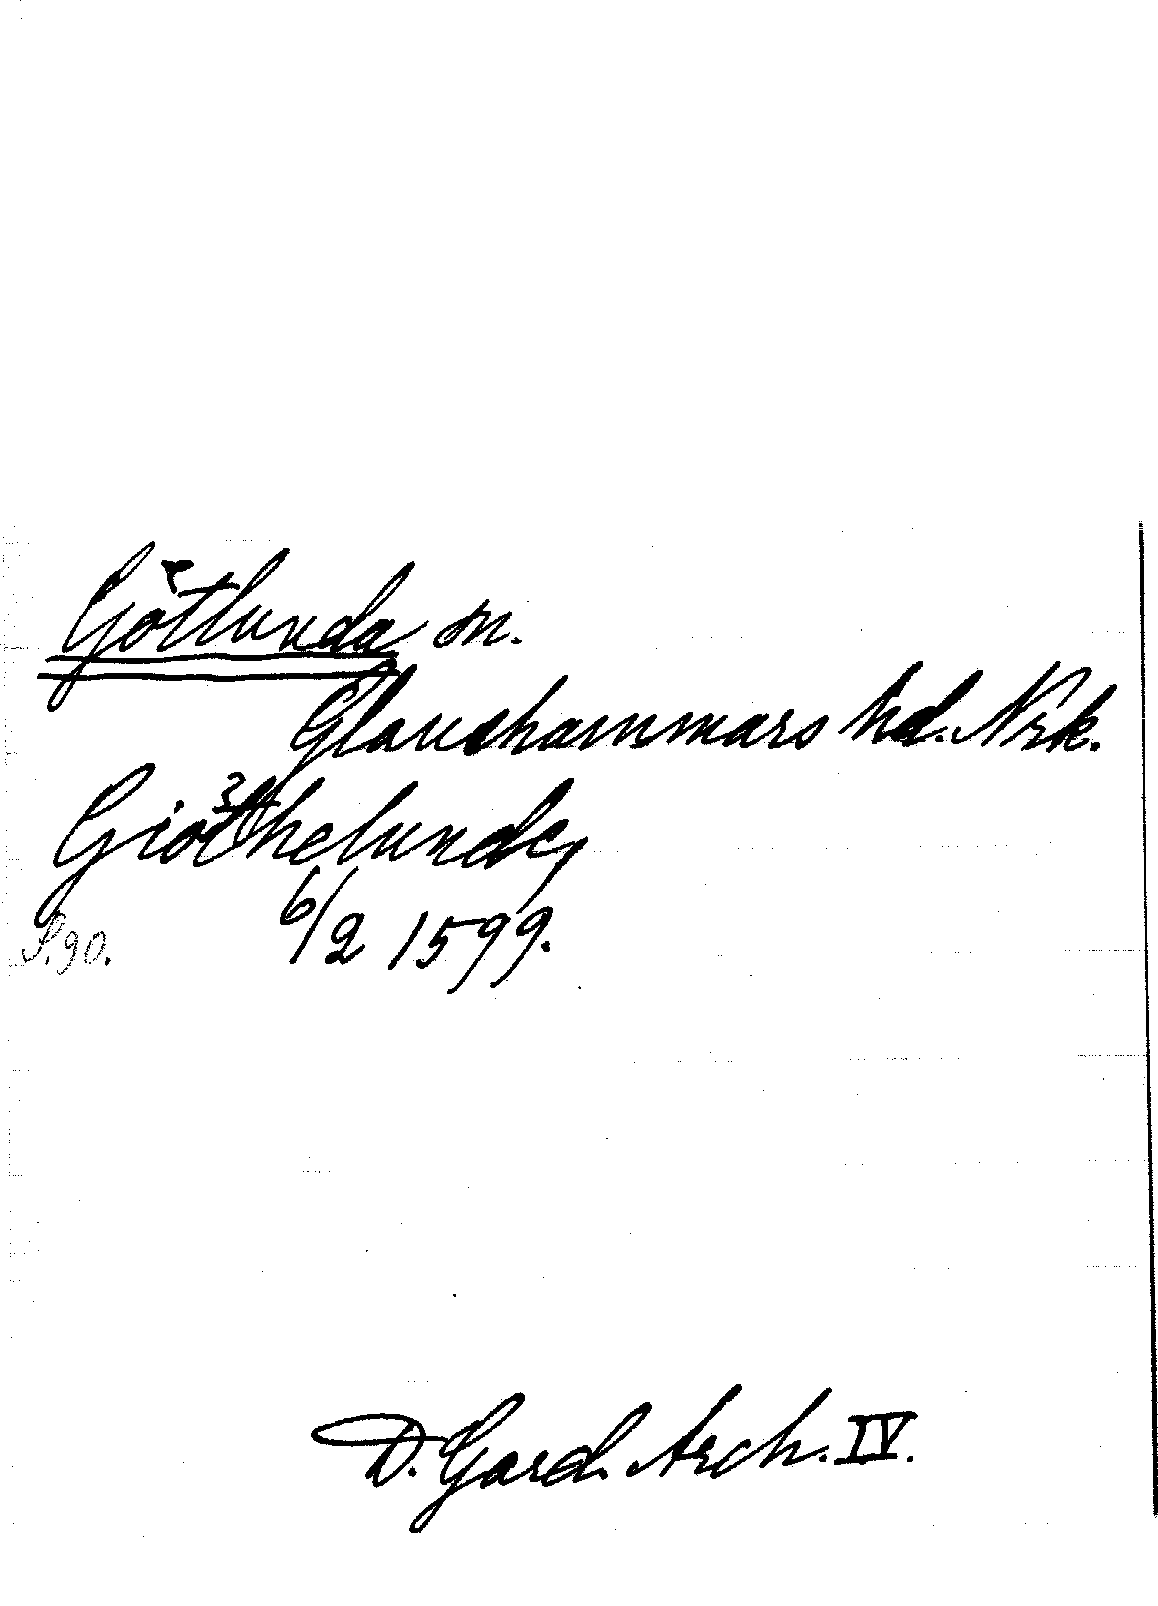 Götlunda sn.
Glanshammars hd. Nrk.
Giöthelunde,
6/2 1599.
S. 90.
D. Gard. Arch. IV.